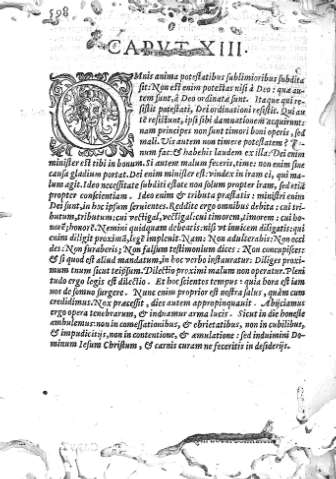 598
CAPVT XIII.
OMnis anima potestatibus sublimioribus subdita
sit: Non est enim potestas nisi à Deo: quæ au-
tem sunt, à Deo ordinatæ sunt. Itaque qui re-
sistit potestati, Dei ordinationi resistit. Qui au-
tē resistunt, ipsi sibi damnationem acquirunt:
nam principes non sunt timori boni operis, sed
mali. Vis autem non timere potestatem? Bo-
num fac: & habebis laudem ex illa: Dei enim
minister est tibi in bonum. Si autem malum feceris, time: non enim sine
causa gladium portat. Dei enim minister est: vindex in iram ei, qui ma-
lum agit. Ideo necessitate subditi estote non solum propter iram, sed etiā
propter conscientiam. Ideo enim & tributa præstatis: ministri enim
Dei sunt, in hoc ipsum seruientes. Reddite ergo omnibus debita: cui tri-
butum, tributum: cui vectigal, vectigal: cui timorem, timorem: cui ho-
norē, honorē. Nemini quidquam debeatis: nisi vt inuicem diligatis: qui
enim diligit proximū, legē impleuit. Nam: Non adulterabis: Non occi
des: Non furaberis: Non falsum testimonium dices: Non concupisces:
& si quod est aliud mandatum, in hoc verbo instauratur: Diliges proxi-
mum tuum sicut teipsum. Dilectio proximi malum non operatur. Pleni
tudo ergo legis est dilectio. Et hoc scientes tempus: quia hora est iam
nos de somno surgere. Nunc enim propior est nostra salus, quàm cum
credidimus. Nox præcessit, dies autem appropinquauit. Abijciamus
ergo opera tenebrarum, & induamur arma lucis. Sicut in die honestè
ambulemus: non in comessationibus, & ebrietatibus, non in cubilibus,
& impudicitijs, non in contentione, & æmulatione: sed induimini Do-
minum Iesum Christum, & carnis curam ne feceritis in desiderijs.